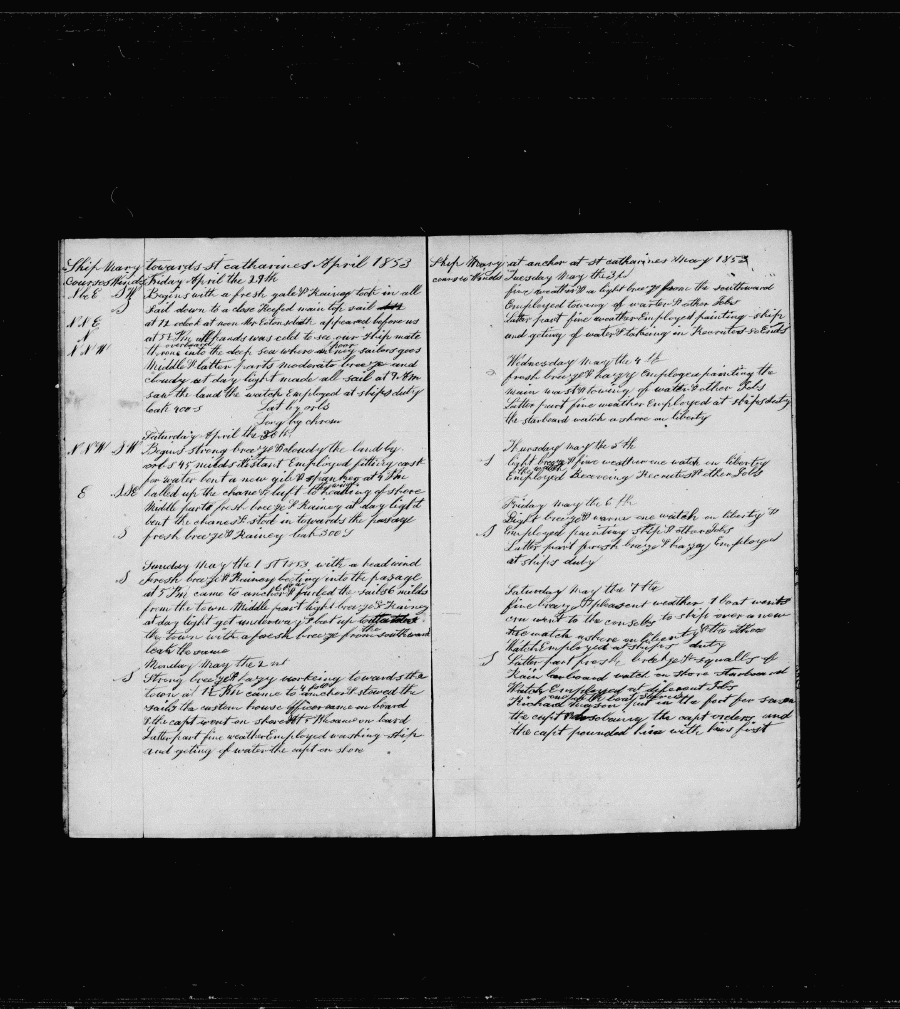 Ship Mary towards st catharines April 1853
Courses Winds Friday April the 29th
N b E S W Begins with a fresh gale & Rainey took in all
S sail down to a close Reefed main top sail
N N E at 12 oclock at noon Mr Eaton death appeared before us
N at 5 ½ Pm all hands was cold to see our ship mate
N N W throne overboard into the deep sea where many poor sailors goes
Middle & latter parts moderate breeze and
cloudy at day light made all sail at 9 Am
saw the land the watch Employed at ships duty
leak 400 S Lat by orbs
Long by chrom
Saturday April the 30th
N N W S W Begins strong breeze & cloudy the land by
orbs 45 milds distant Employed fitting cast
for water bent a new gib & spanker at 4 Pm
E S S E halled up the chane & luft to wind heading of shore
Middle parts fresh breeze & Rainey at day light
bent the chanes & stod in towards the passage
S fresh breeze & Rainey leak 300 S
Sunday May the 1 st 1853 with a head wind
S Fresh breeze & Rainey beeting into the pasage
at 5 Pm came to anchor & furled the sails 6 milds
from the town Middle part light breeze & Rainey
at day light got underway & beat up
the town with a fresh breeze from the southward
leak the same
Monday May the 2 nt
S Strong breeze & hazy working towards the
town at 12 Pm came to anchor & stowed the
sails the custom house officer came on board
& the capt went on shore at 5 Pm came on board
Latter part fine weather Employed washing ship
and geting of water the capt on shore
Ship Mary at anchor at st catharines May 1853
courses Winds Tuesday May the 3 d
fine weather & a light breeze from the southward
Employed towing of warter & other Jobs
Latter part fine weather Employed painting ship
and geting of water & takeing in Recruits so Ends
Wednesday May the 4 th
S fresh breeze & hazy Employed painting the
main mast & towing of water & other Jobs
Latter part fine weather Employed at ships duty
the starboard watch a shore on liberty
Thursday May the 5 th
S light breeze & fine weather one watch on liberty
& the other Employed Receiving Recruits & other Jobs
Friday May the 6 th
Light breeze & warm one watch on liberty &
S Employed painting ship & other Jobs
Latter part fresh breeze & hazy Employed
at ships duty
Saturday May the 7 the
fine breeze & pleasent weather 1 boat went
crw went to the conselss to ship over a new
the watch ashore on liberty & the other
Watch Employed at ships duty
S Latter part fresh breheze & squalls of
Rain larboard watch on shore Starboard
Watch Employed at different Jobs
Richard Mason one of the boat stears put in the fort for sason
the capt Disobaing the capt orders and
the capt pounded him with his fist